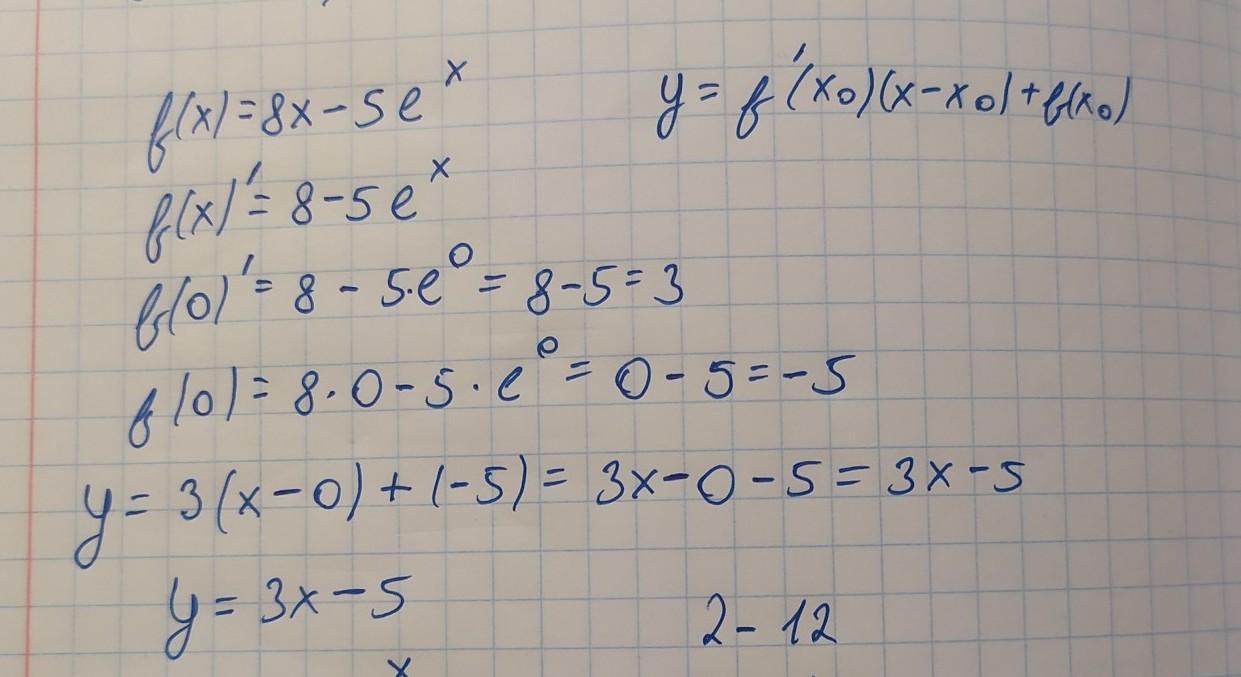 f(x) = 8x - 5e^x
y = f'(x₀)(x - x₀) + f(x₀)
f(x)' = 8 - 5e^x
f(0)' = 8 - 5·e^0 = 8 - 5 = 3
f(0) = 8·0 - 5·e^0 = 0 - 5 = -5
y = 3(x - 0) + (-5) = 3x - 0 - 5 = 3x - 5
y = 3x - 5
2 - 12
x